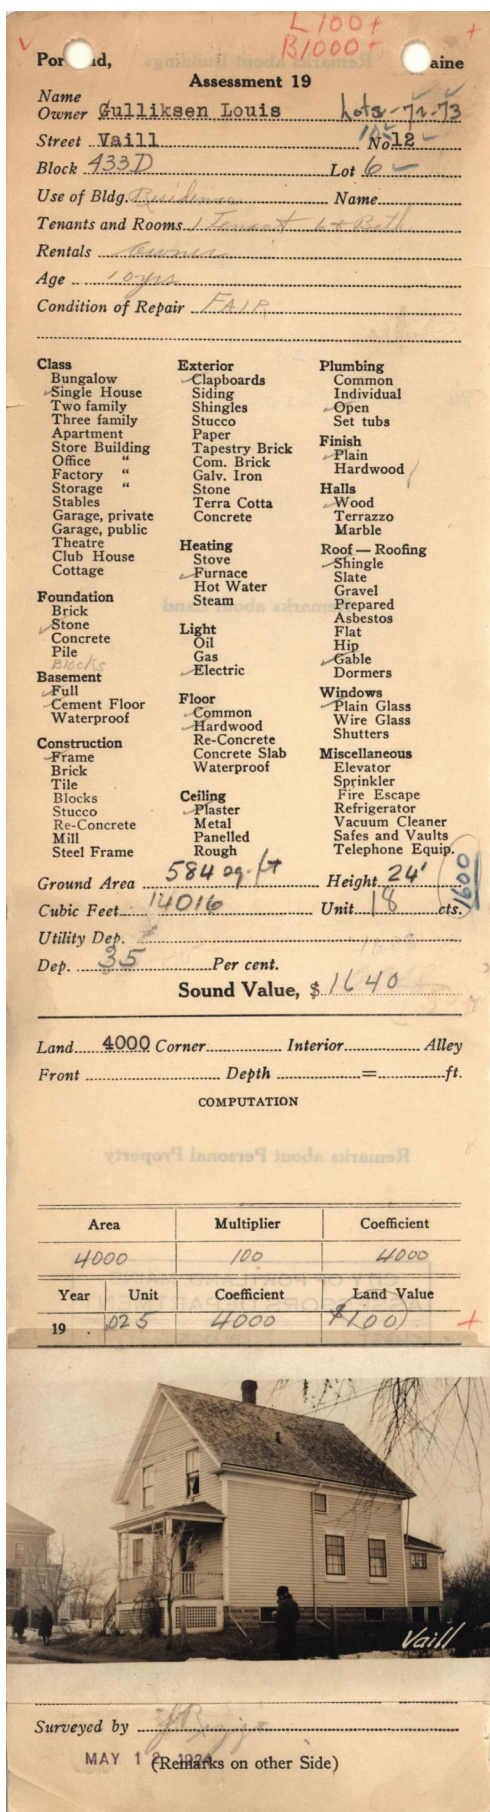 L 100+
B 1000+
Por nd, aine
Assessment 19
Name
Owner Gulliksen Louis Lots - 72-73
Street Vaill No 12
Block 433D Lot 6
Use of Bldg. Residence Name
Tenants and Rooms 1 Tenant 6 + Bath
Rentals Owner
Age 10 yrs
Condition of Repair FAIR
Class
Bungalow
Single House
Two family
Three family
Apartment
Store Building
Office "
Factory "
Storage "
Stables
Garage, private
Garage, public
Theatre
Club House
Cottage
Foundation
Brick
Stone
Concrete
Pile
Blocks
Basement
Full
Cement Floor
Waterproof
Construction
Frame
Brick
Tile
Blocks
Stucco
Re-Concrete
Mill
Steel Frame
Exterior
Clapboards
Siding
Shingles
Stucco
Paper
Tapestry Brick
Com. Brick
Galv. Iron
Stone
Terra Cotta
Concrete
Heating
Stove
Furnace
Hot Water
Steam
Light
Oil
Gas
Electric
Floor
Common
Hardwood
Re-Concrete
Concrete Slab
Waterproof
Ceiling
Plaster
Metal
Panelled
Rough
Plumbing
Common
Individual
Open
Set tubs
Finish
Plain
Hardwood
Halls
Wood
Terrazzo
Marble
Roof — Roofing
Shingle
Slate
Gravel
Prepared
Asbestos
Flat
Hip
Gable
Dormers
Windows
Plain Glass
Wire Glass
Shutters
Miscellaneous
Elevator
Sprinkler
Fire Escape
Refrigerator
Vacuum Cleaner
Safes and Vaults
Telephone Equip.
Ground Area 584 sq. ft Height 24'
1600
Cubic Feet 14016 Unit 18 cts.
Utility Dep.
Dep. 35 Per cent.
Sound Value, $ 1640
Land 4000 Corner Interior Alley
Front Depth = ft.
COMPUTATION
Area Multiplier Coefficient
4000 100 4000
Year Unit Coefficient Land Value
19 .025 4000 $100
Vaill
Surveyed by
MAY 12 1924
(Remarks on other Side)